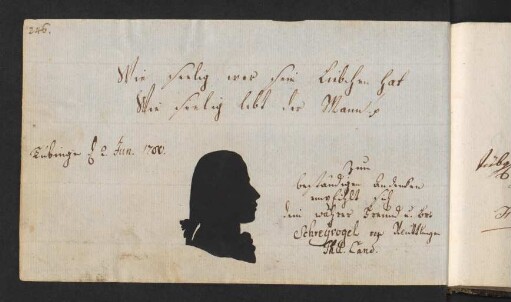 246.
Wie seelig wer sein Liebchen hat
Wie seelig lebt der Mann
Tübinge d 2 Jun. 1788.
Zum
beständigen Andenken
empfiehlt sich
dein wahrer Freund u. Br.
Schreyvogel aus Reuttlingen
Cand.